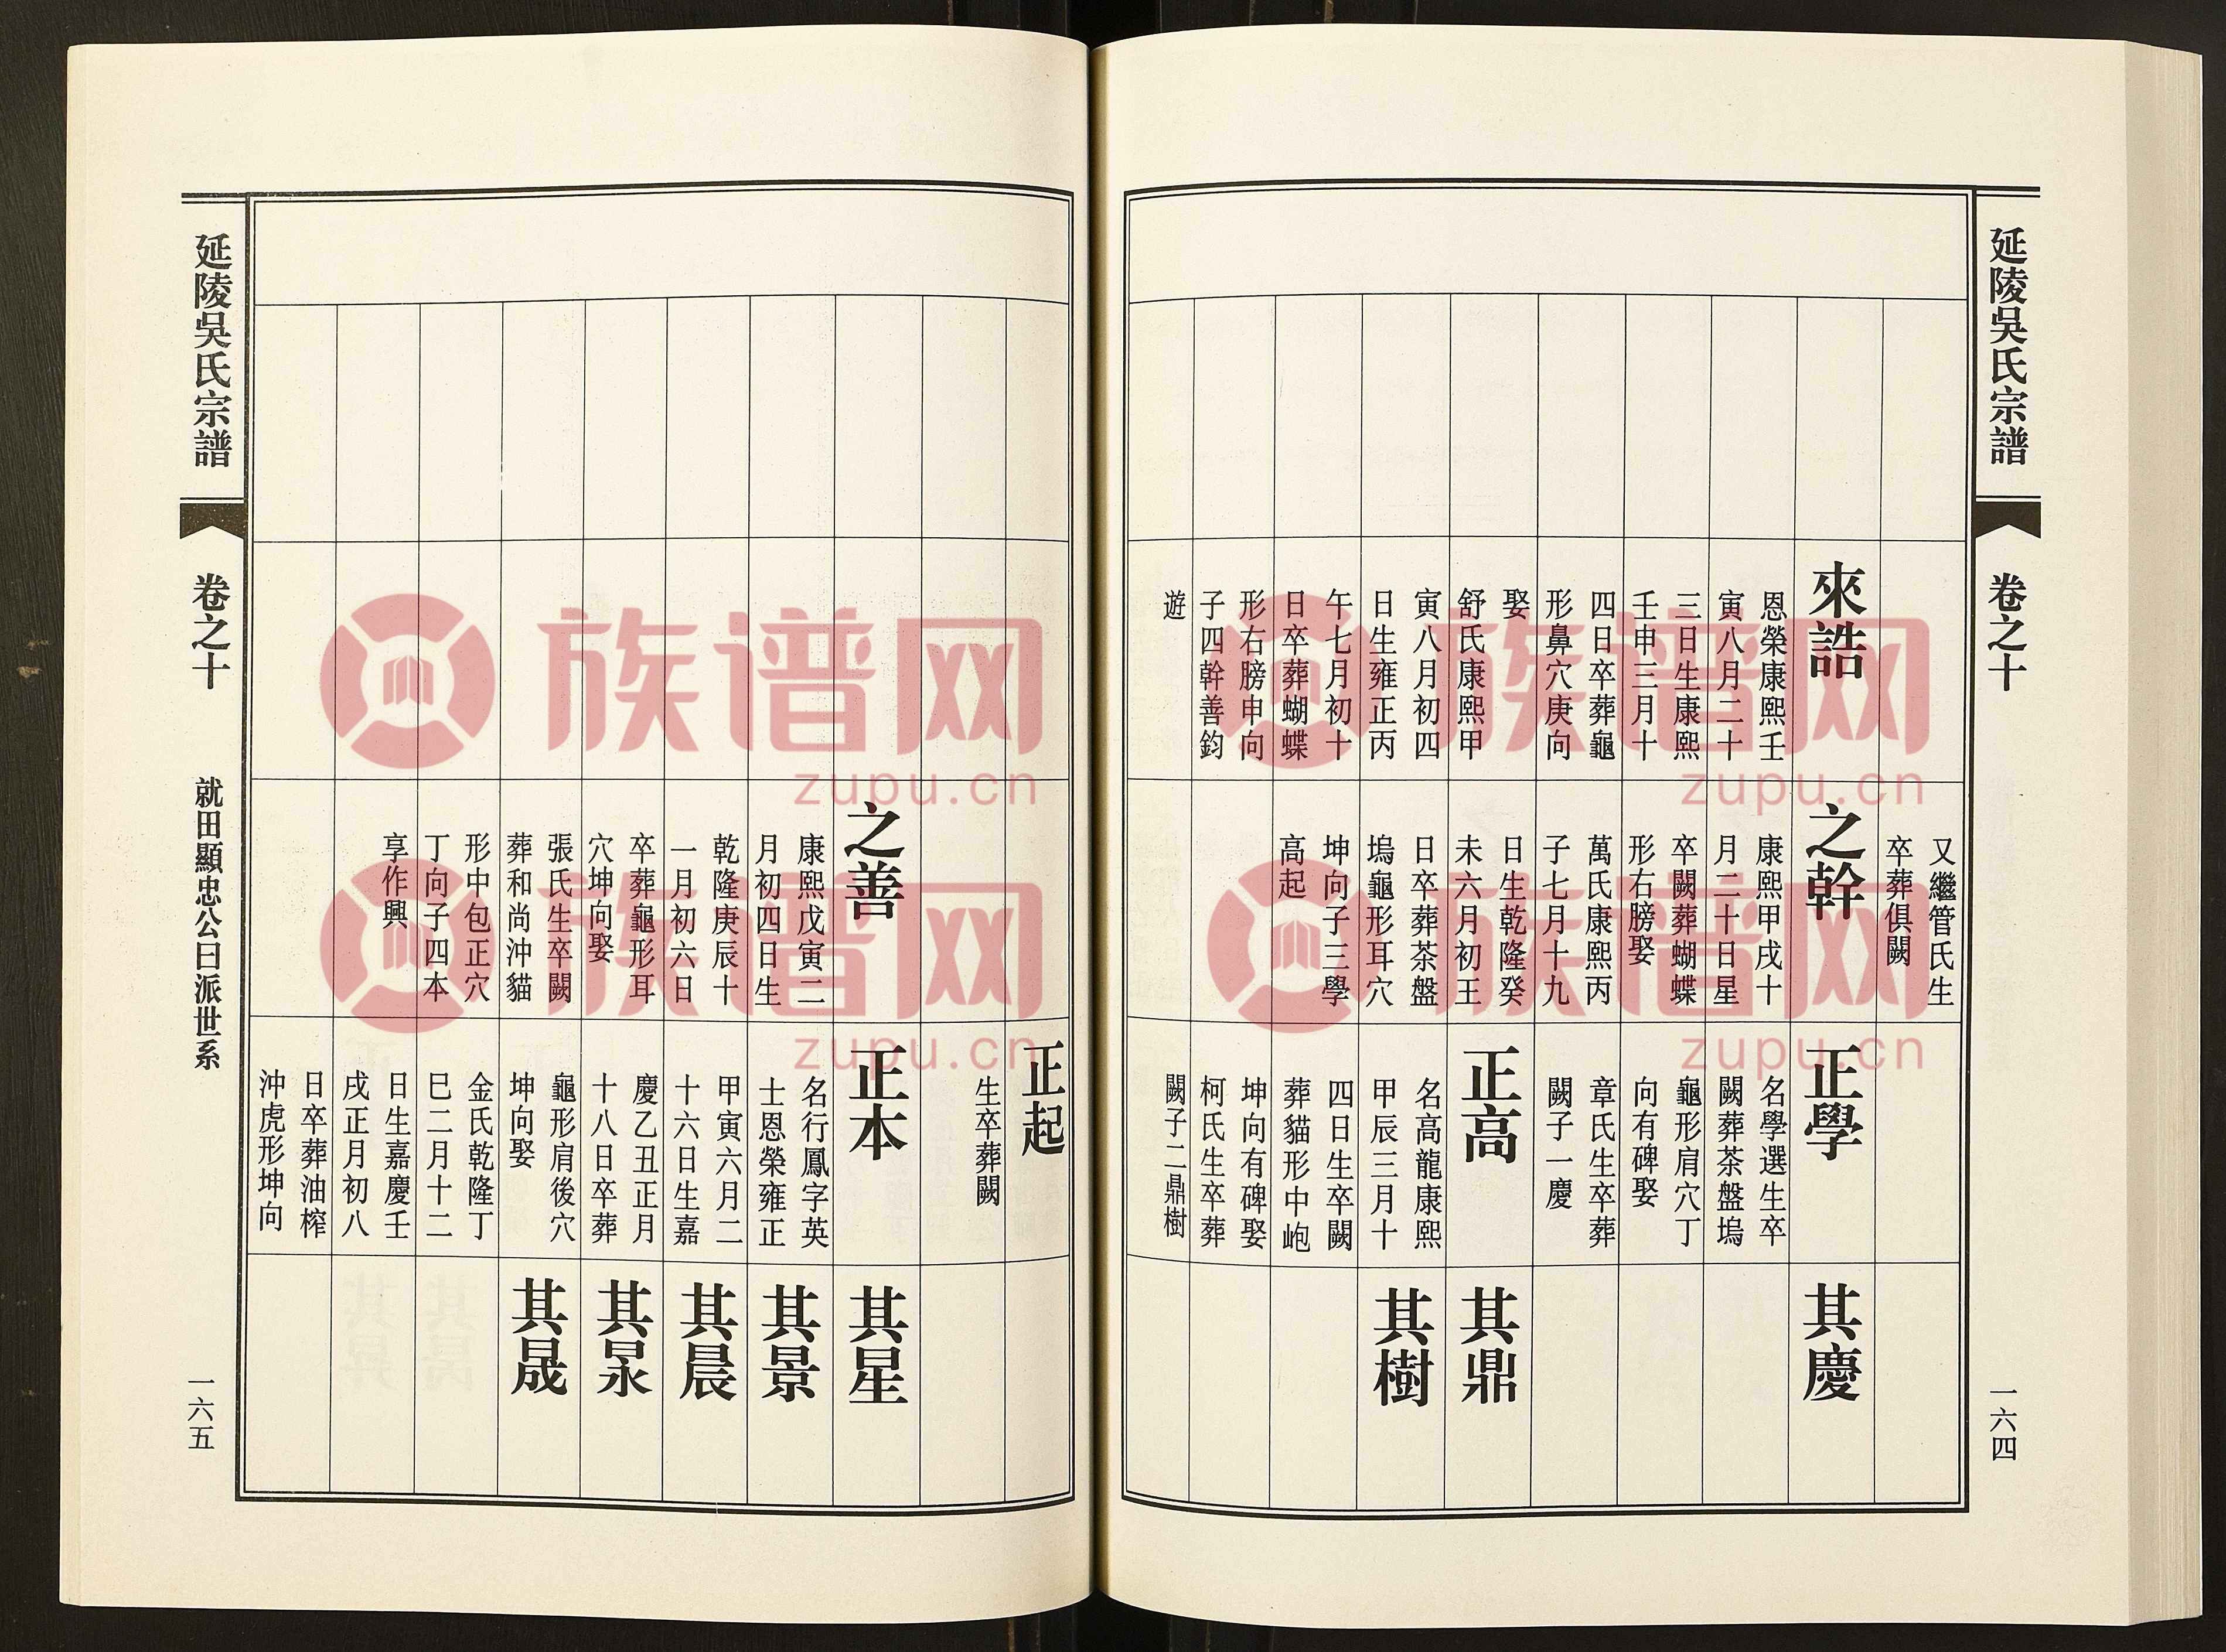 延陵吳氏宗譜
卷之十
一六四
來誥
恩榮康熙壬
寅八月二十
三日生康熙
壬申三月十
四日卒葬龜
形鼻穴庚向
娶
舒氏康熙甲
寅八月初四
日生雍正丙
午七月初十
日卒葬蝴蝶
形右膀申向
子四幹善鈞
遊
又繼管氏生
卒葬俱闕
之幹
康熙甲戌十
月二十日星
卒闕葬蝴蝶
形右膀娶
萬氏康熙丙
子七月十九
日生乾隆癸
未六月初王
日卒葬茶盤
塢龜形耳穴
坤向子三學
高起
正學
名學選生卒
闕葬茶盤塢
龜形肩穴丁
向有碑娶
章氏生卒葬
闕子一慶
正高
名高龍康熙
甲辰三月十
四日生卒闕
葬貓形中峗
坤向有碑娶
柯氏生卒葬
闕子二鼎樹
其慶
其鼎
其樹
之善
康熙戊寅二
月初四日生
乾隆庚辰十
一月初六日
卒葬龜形耳
穴坤向娶
張氏生卒闕
葬和尚沖貓
形中包正穴
丁向子四本
享作興
正起
生卒葬闕
正本
名行鳳字英
士恩榮雍正
甲寅六月二
十六日生嘉
慶乙丑正月
十八日卒葬
龜形肩後穴
坤向娶
金氏乾隆丁
巳二月十二
日生嘉慶壬
戌正月初八
日卒葬油榨
沖虎形坤向
其星
其景
其晨
其杲
其晟
延陵吳氏宗譜
卷之十
就田顯忠公曰派世系
一六五
族谱网
zupu.cn
族谱网
zupu.cn
族谱网
zupu.cn
族谱网
zupu.cn